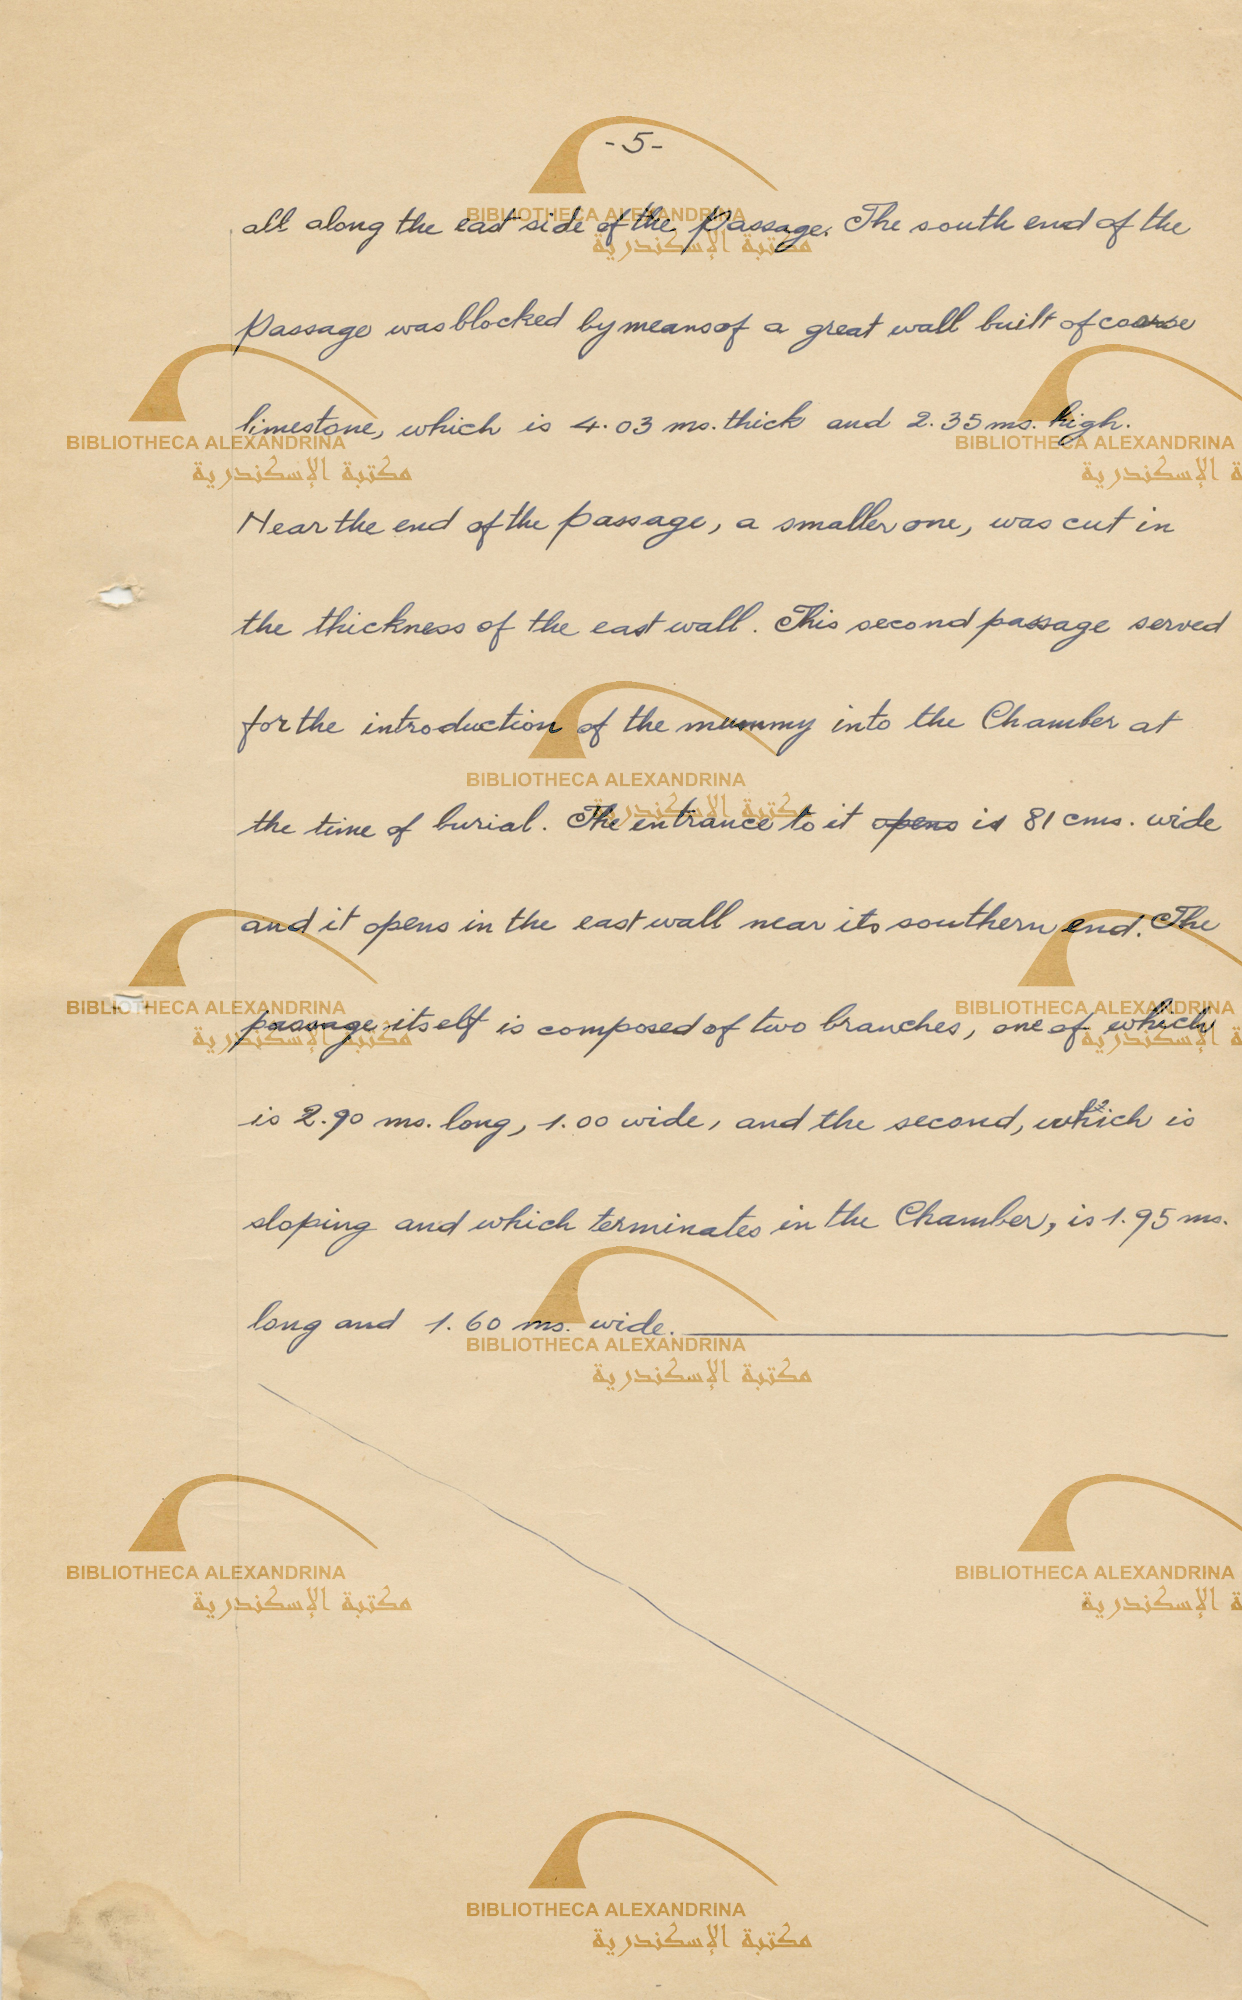 -5-
all along the east side of the passage. The south end of the
passage was blocked by means of a great wall built of coarse
limestone, which is 4.03 ms. thick and 2.35 ms. high.
Near the end of the passage, a smaller one, was cut in
the thickness of the east wall. This second passage served
for the introduction of the mummy into the Chamber at
the time of burial. The entrance to it opens is 81 cms. wide
and it opens in the east wall near its southern end. The
passage itself is composed of two branches, one of which
is 2.90 ms. long, 1.00 wide, and the second, which is
sloping and which terminates in the Chamber, is 1.95 ms.
long and 1.60 ms. wide.
BIBLIOTHECA ALEXANDRINA
مكتبة الإسكندرية
BIBLIOTHECA ALEXANDRINA
مكتبة الإسكندرية
BIBLIOTHECA ALEXANDRINA
BIBLIOTHECA ALEXANDRINA
مكتبة الإسكندرية
BIBLIOTHECA ALEXANDRINA
مكتبة الإسكندرية
BIBLIOTHECA ALEXANDRINA
BIBLIOTHECA ALEXANDRINA
مكتبة الإسكندرية
BIBLIOTHECA ALEXANDRINA
مكتبة الإسكندرية
BIBLIOTHECA ALEXANDRINA
BIBLIOTHECA ALEXANDRINA
مكتبة الإسكندرية